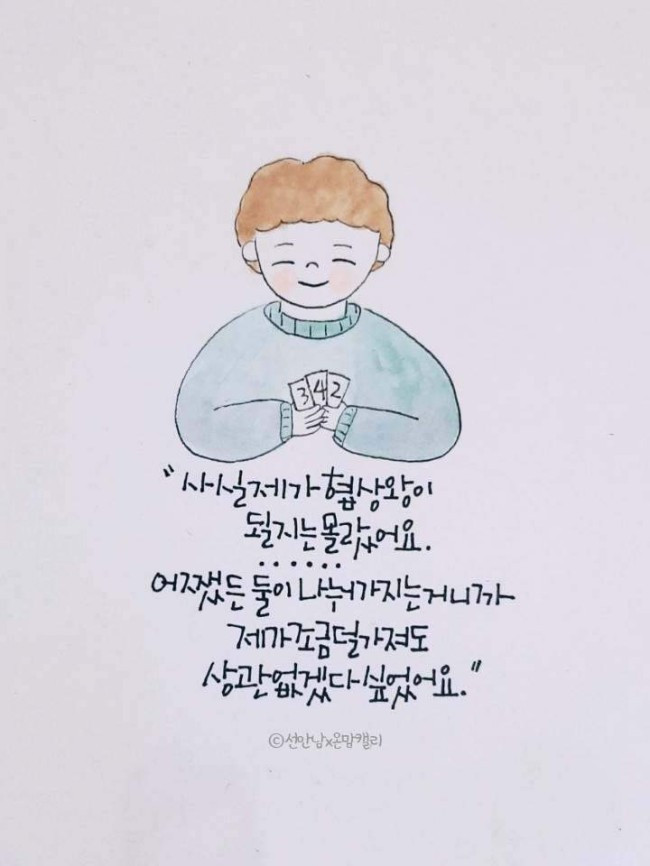 3 4 2
" 사실 제가 협상왕이
될지는 몰랐어요.
......
어쨌든 둘이 나눠가지는거니까
제가 조금 덜 가져도
상관없겠다 싶었어요."
©선안남x온맘캘리